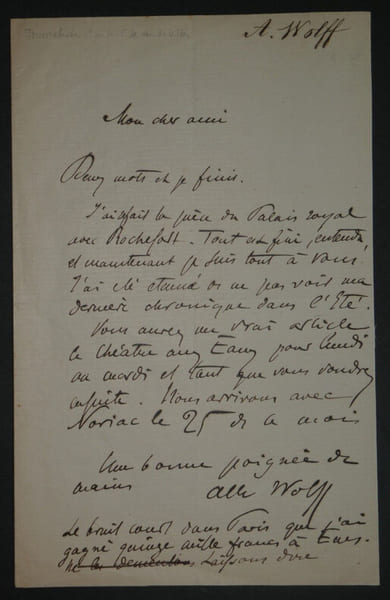 A. Wolff
Mon cher ami
Deux mots et je finis.
J'ai fait la pièce du Palais royal
avec Rochefort. Tout est fini, entendu
et maintenant je suis tout à vous.
J'ai été étonné de ne pas voir ma
dernière chronique dans l'Été.
Vous aurez un vrai article
le théâtre aux Eaux pour lundi
ou mardi et tant que vous voudrez
ensuite. Nous arrivons avec
Noriac le 25 de ce mois
Une bonne poignée de
mains
Alb Wolff
Le bruit court dans Paris que j'ai
gagné quinze mille francs à Ems.
Ne les démentons Laissons dire